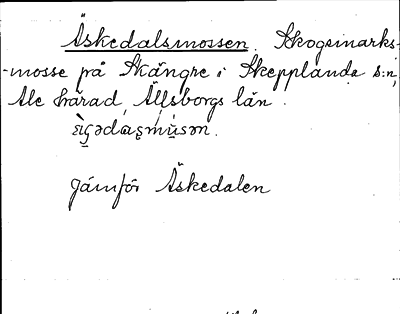 Äskedalsmossen. Skogsmarks-
-mosse på Skångre i Skepplanda s:n,
Ale härad, Älfsborgs län.
Jämför Äskedalen